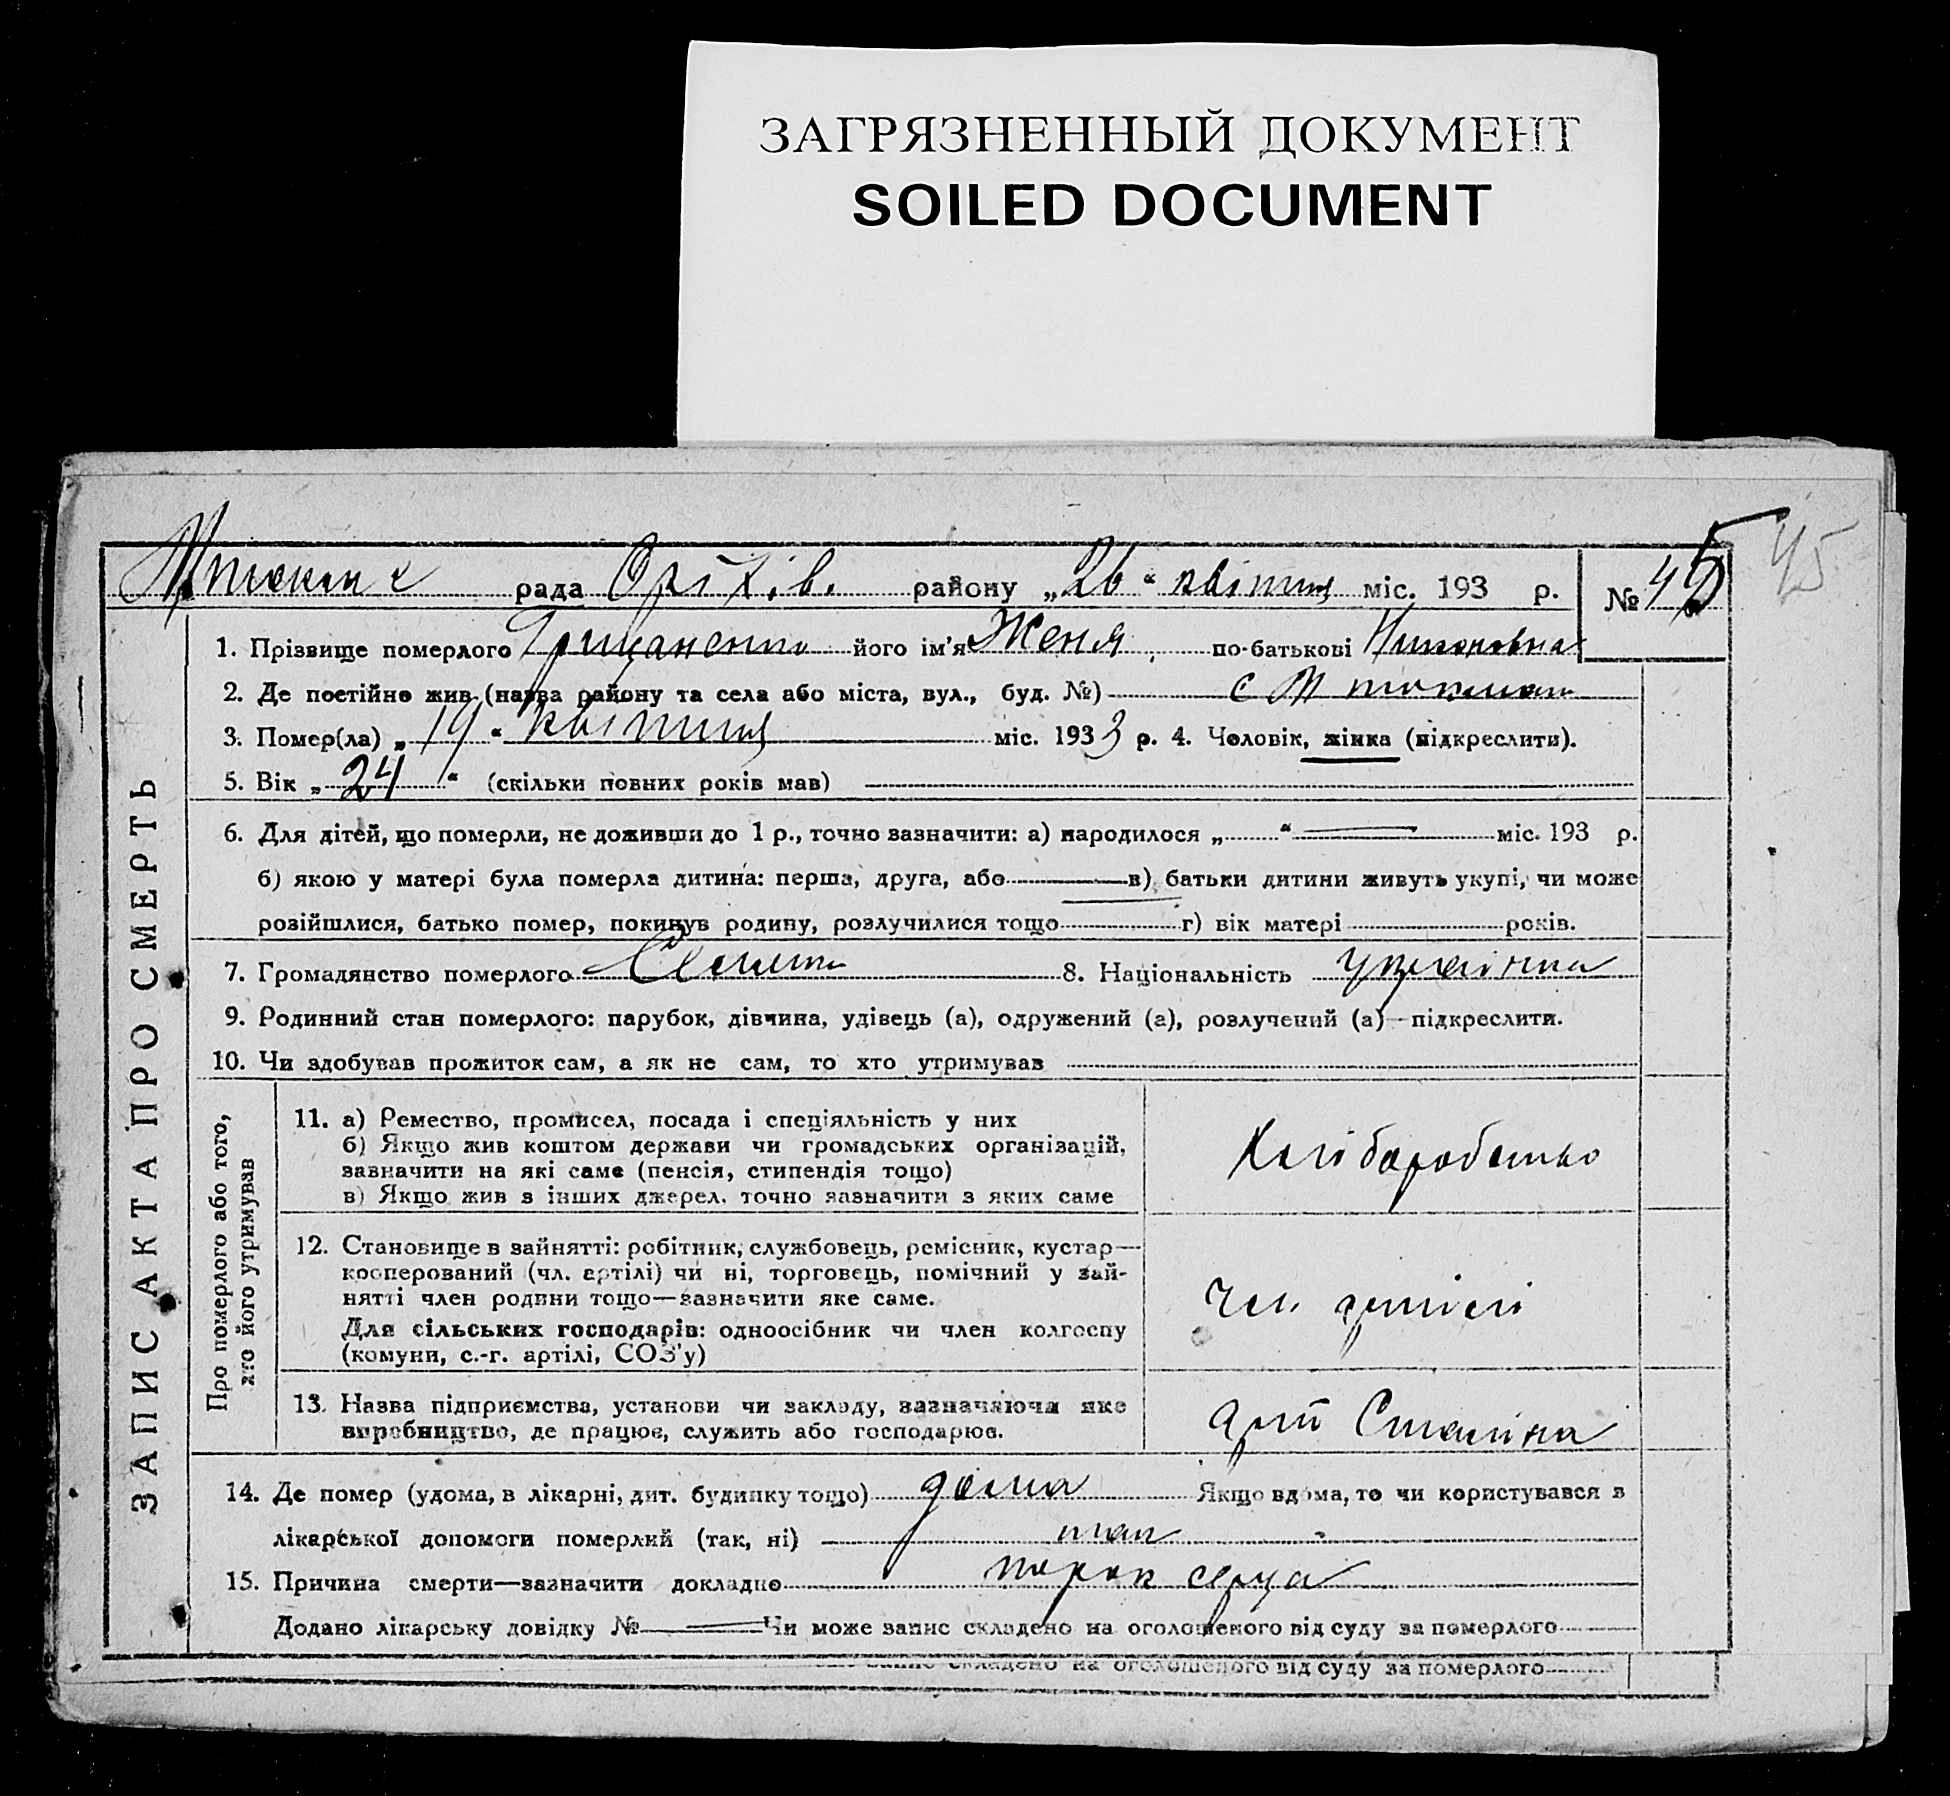 ЗАГРЯЗНЕННЫЙ ДОКУМЕНТ
SOILED DOCUMENT
рада Оріхів. району „26“ квітня міс. 193 р. № 45 45
1. Прізвище померлого Грицаненко його ім'я Женя, по-батькові
2. Де постійно жив (назва району та села або міста, вул., буд. №) с
3. Помер(ла) „19“ квітня міс. 1933 р. 4. Чоловік, жінка (підкреслити).
5. Вік „24“ (скільки повних років мав)
6. Для дітей, що померли, не доживши до 1 р., точно зазначити: а) народилося „ “ міс. 193 р.
б) якою у матері була померла дитина: перша, друга, або в) батьки дитини живуть укупі, чи може
розійшлися, батько помер, покинув родину, розлучилися тощо г) вік матері років.
7. Громадянство померлого 8. Національність українка
9. Родинний стан померлого: парубок, дівчина, удівець (а), одружений (а), розлучений (а)—підкреслити.
10. Чи здобував прожиток сам, а як не сам, то хто утримував
ЗАПИС АКТА ПРО СМЕРТЬ
Про померлого або того,
хто його утримував
11. а) Ремество, промисел, посада і спеціяльність у них
б) Якщо жив коштом держави чи громадських організацій,
зазначити на які саме (пенсія, стипендія тощо)
в) Якщо жив з інших джерел, точно зазначити з яких саме
Хліборобство
12. Становище в зайнятті: робітник, службовець, ремісник, кустар—
кооперований (чл. артілі) чи ні, торговець, помічний у зай-
нятті член родини тощо—зазначити яке саме.
Для сільських господарів: одноосібник чи член колгоспу
(комуни, с.-г. артілі, СОЗ'у)
Чл. артілі
13. Назва підприємства, установи чи закладу, зазначаючи яке
виробництво, де працює, служить або господарює.
Арт Сталіна
14. Де помер (удома, в лікарні, дит. будинку тощо) дома Якщо вдома, то чи користувався з
лікарської допомоги померлий (так, ні) так
15. Причина смерти—зазначити докладно порок серця
Додано лікарську довідку № Чи може запис складено на оголошеного від суду за померлого
запис складено на оголошеного від суду за померлого